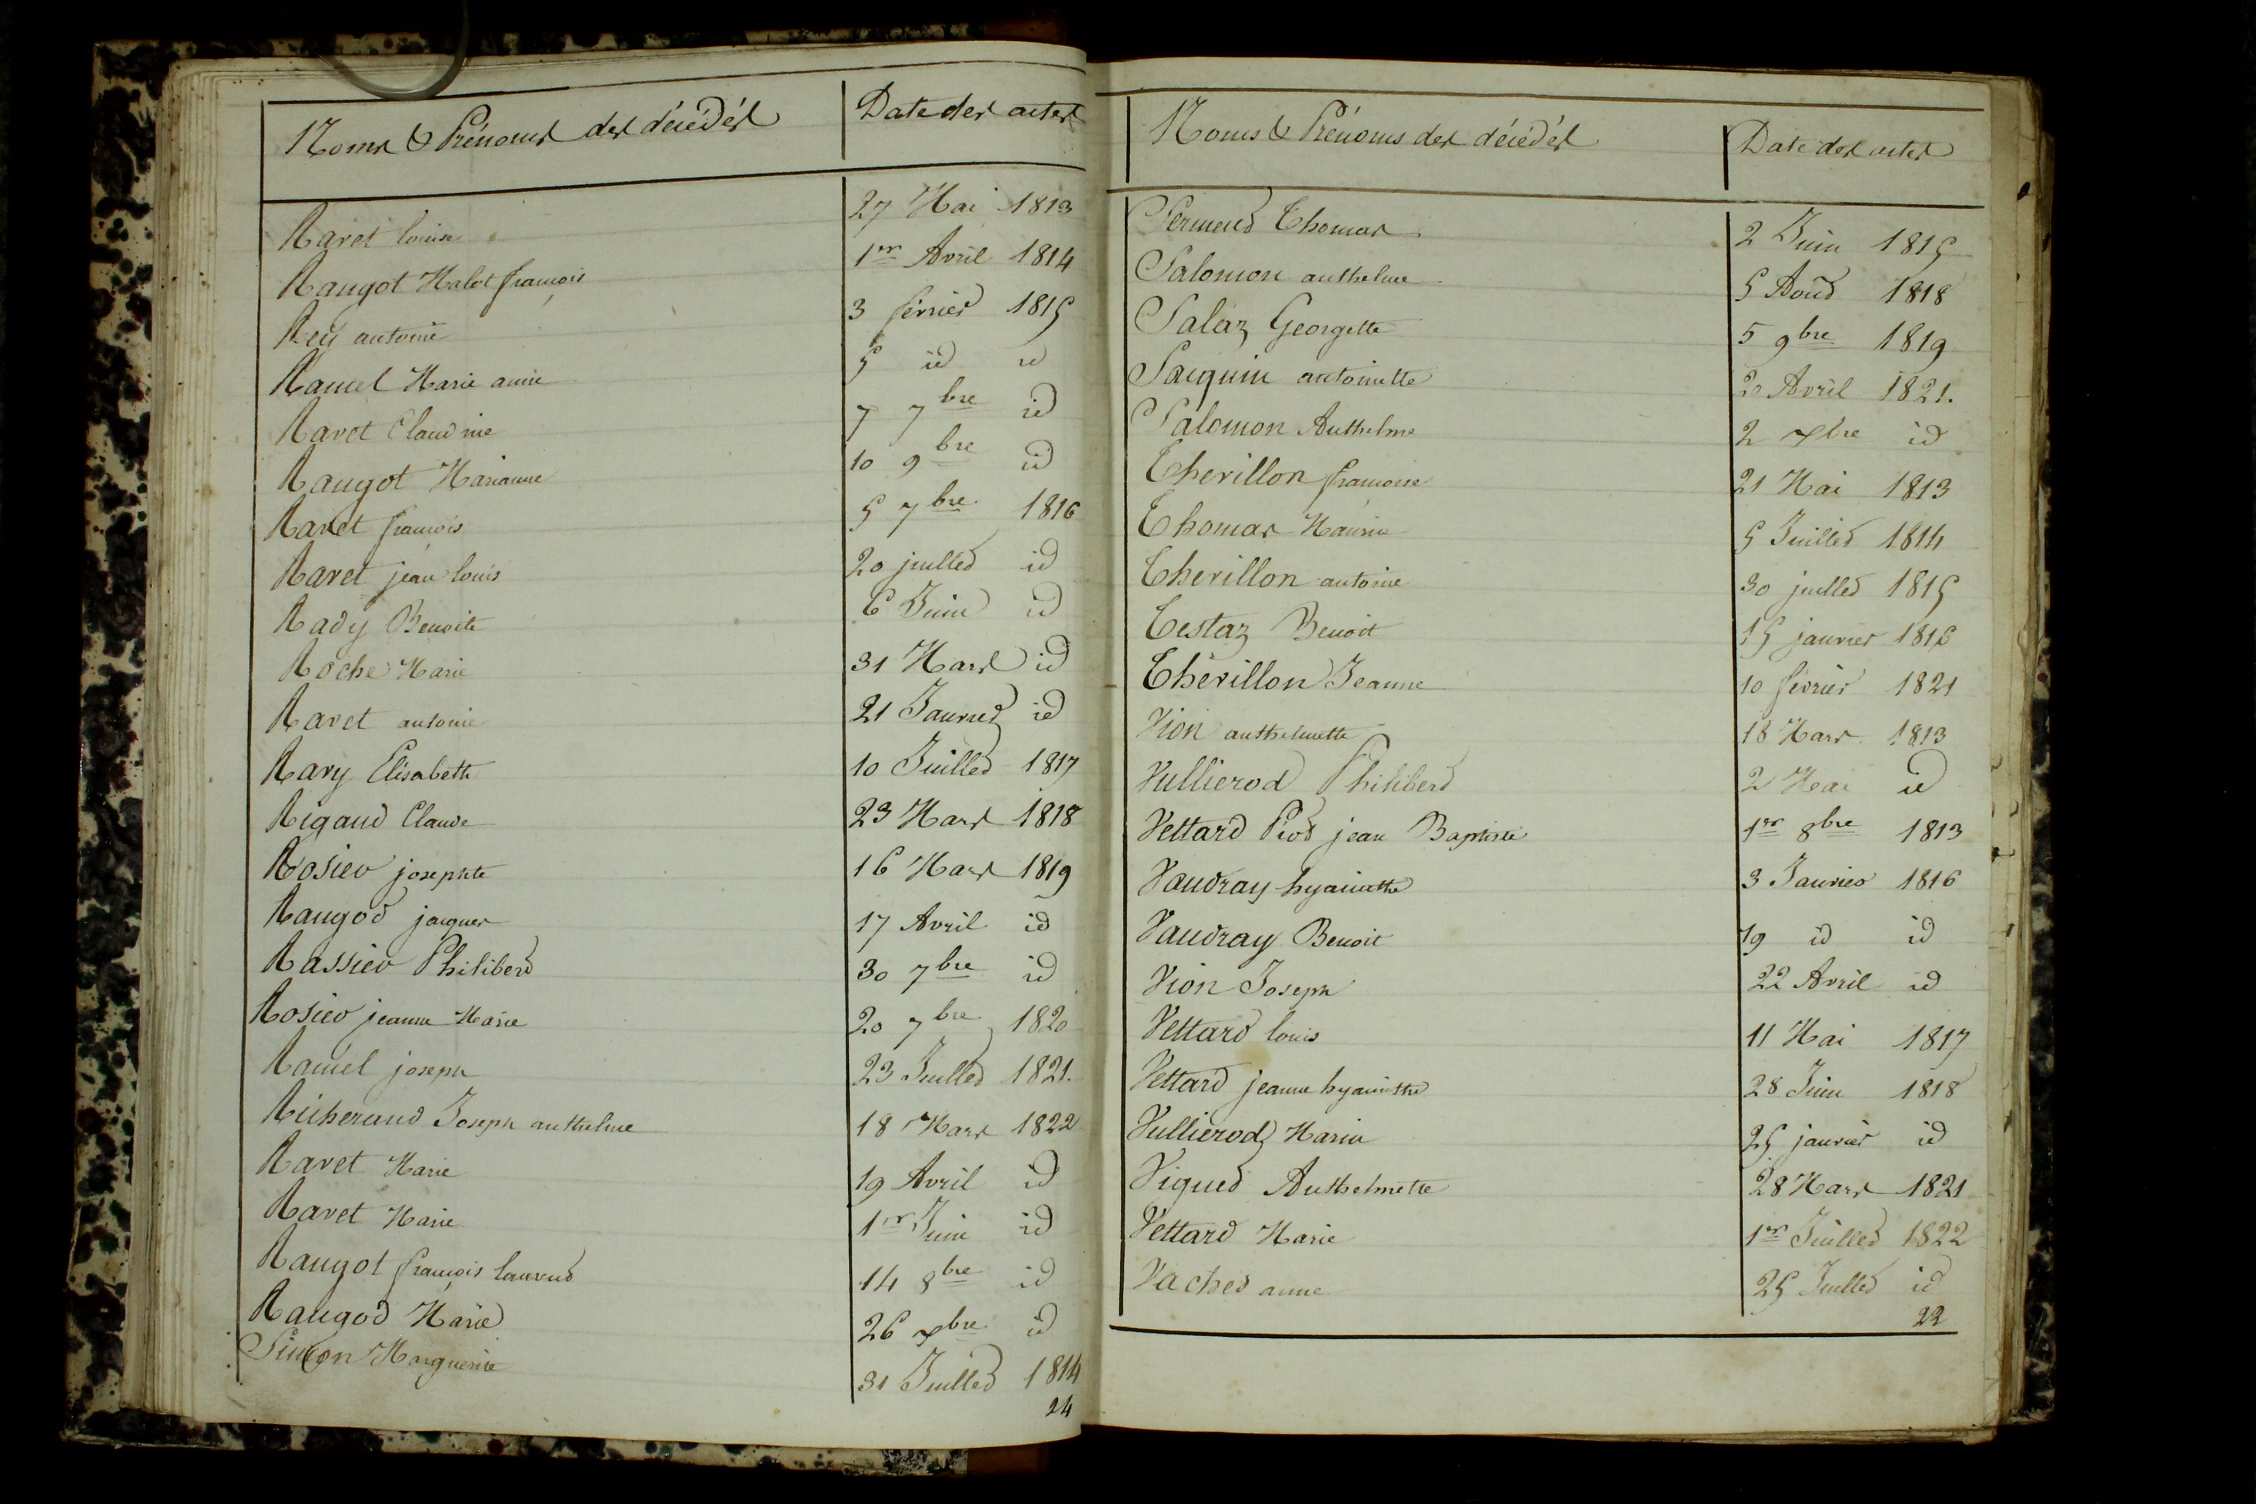 Noms & Prénoms des décédés Date des actes
Ravet louise 27 Mai 1813
Raugot Malot françois 1er Avril 1814
Rey antoine 3 février 1815
Ramel Marie anne 5 id id
Ravet Claudine 7 7bre id
Raugot Marianne 10 9bre id
Ravet françois 5 7bre 1816
Ravet jean louis 20 juillet id
Rady Benoite 6 Juin id
Roche Marie 31 Mars id
Ravet antoine 21 Janvier id
Rary Elisabeth 10 Juillet 1817
Rigaud Claude 23 Mars 1818
Rosier josephte 16 Mars 1819
Raugod jacques 17 Avril id
Rassier Philibert 30 7bre id
Rosier jeanne Marie 20 7bre 1820
Ramel joseph 23 Juillet 1821.
Richerand Joseph anthelme 18 Mars 1822
Ravet Marie 19 Avril id
Ravet Marie 1er Juin id
Raugot françois laurent 14 8bre id
Raugod Marie 26 xbre id
Simon Marguerite 31 Juillet 1814
24
Noms & Prénoms des décédés Date des actes
Sermend Thomas 2 Juin 1815
Salomon anthelme 5 Aout 1818
Salaz Georgette 5 9bre 1819
Sacquin antoinette 20 Avril 1821.
Salomon Anthelme 2 xbre id
Therillon françoise 21 Mai 1813
Thomas 5 Juillet 1814
Therillon antoine 30 juillet 1815
Testaz Benoit 15 janvier 1816
Thérillon Jeanne 10 février 1821
Vion anthelmette 18 Mars 1813
Vullierod Philibert 2 Mai id
Vettard Piot jean Baptiste 1er 8bre 1813
Vaudray hyacinthe 3 Janvier 1816
Vaudray Benoit 19 id id
Vion Joseph 22 Avril id
Vettard louis 11 Mai 1817
Vettard jeanne hyacinthe 28 Juin 1818
Vullierod Maria 25 janvier id
Viguet Anthelmette 28 Mars 1821
Vettard Marie 1er Juillet 1822
Vachet anne 25 Juillet id
22